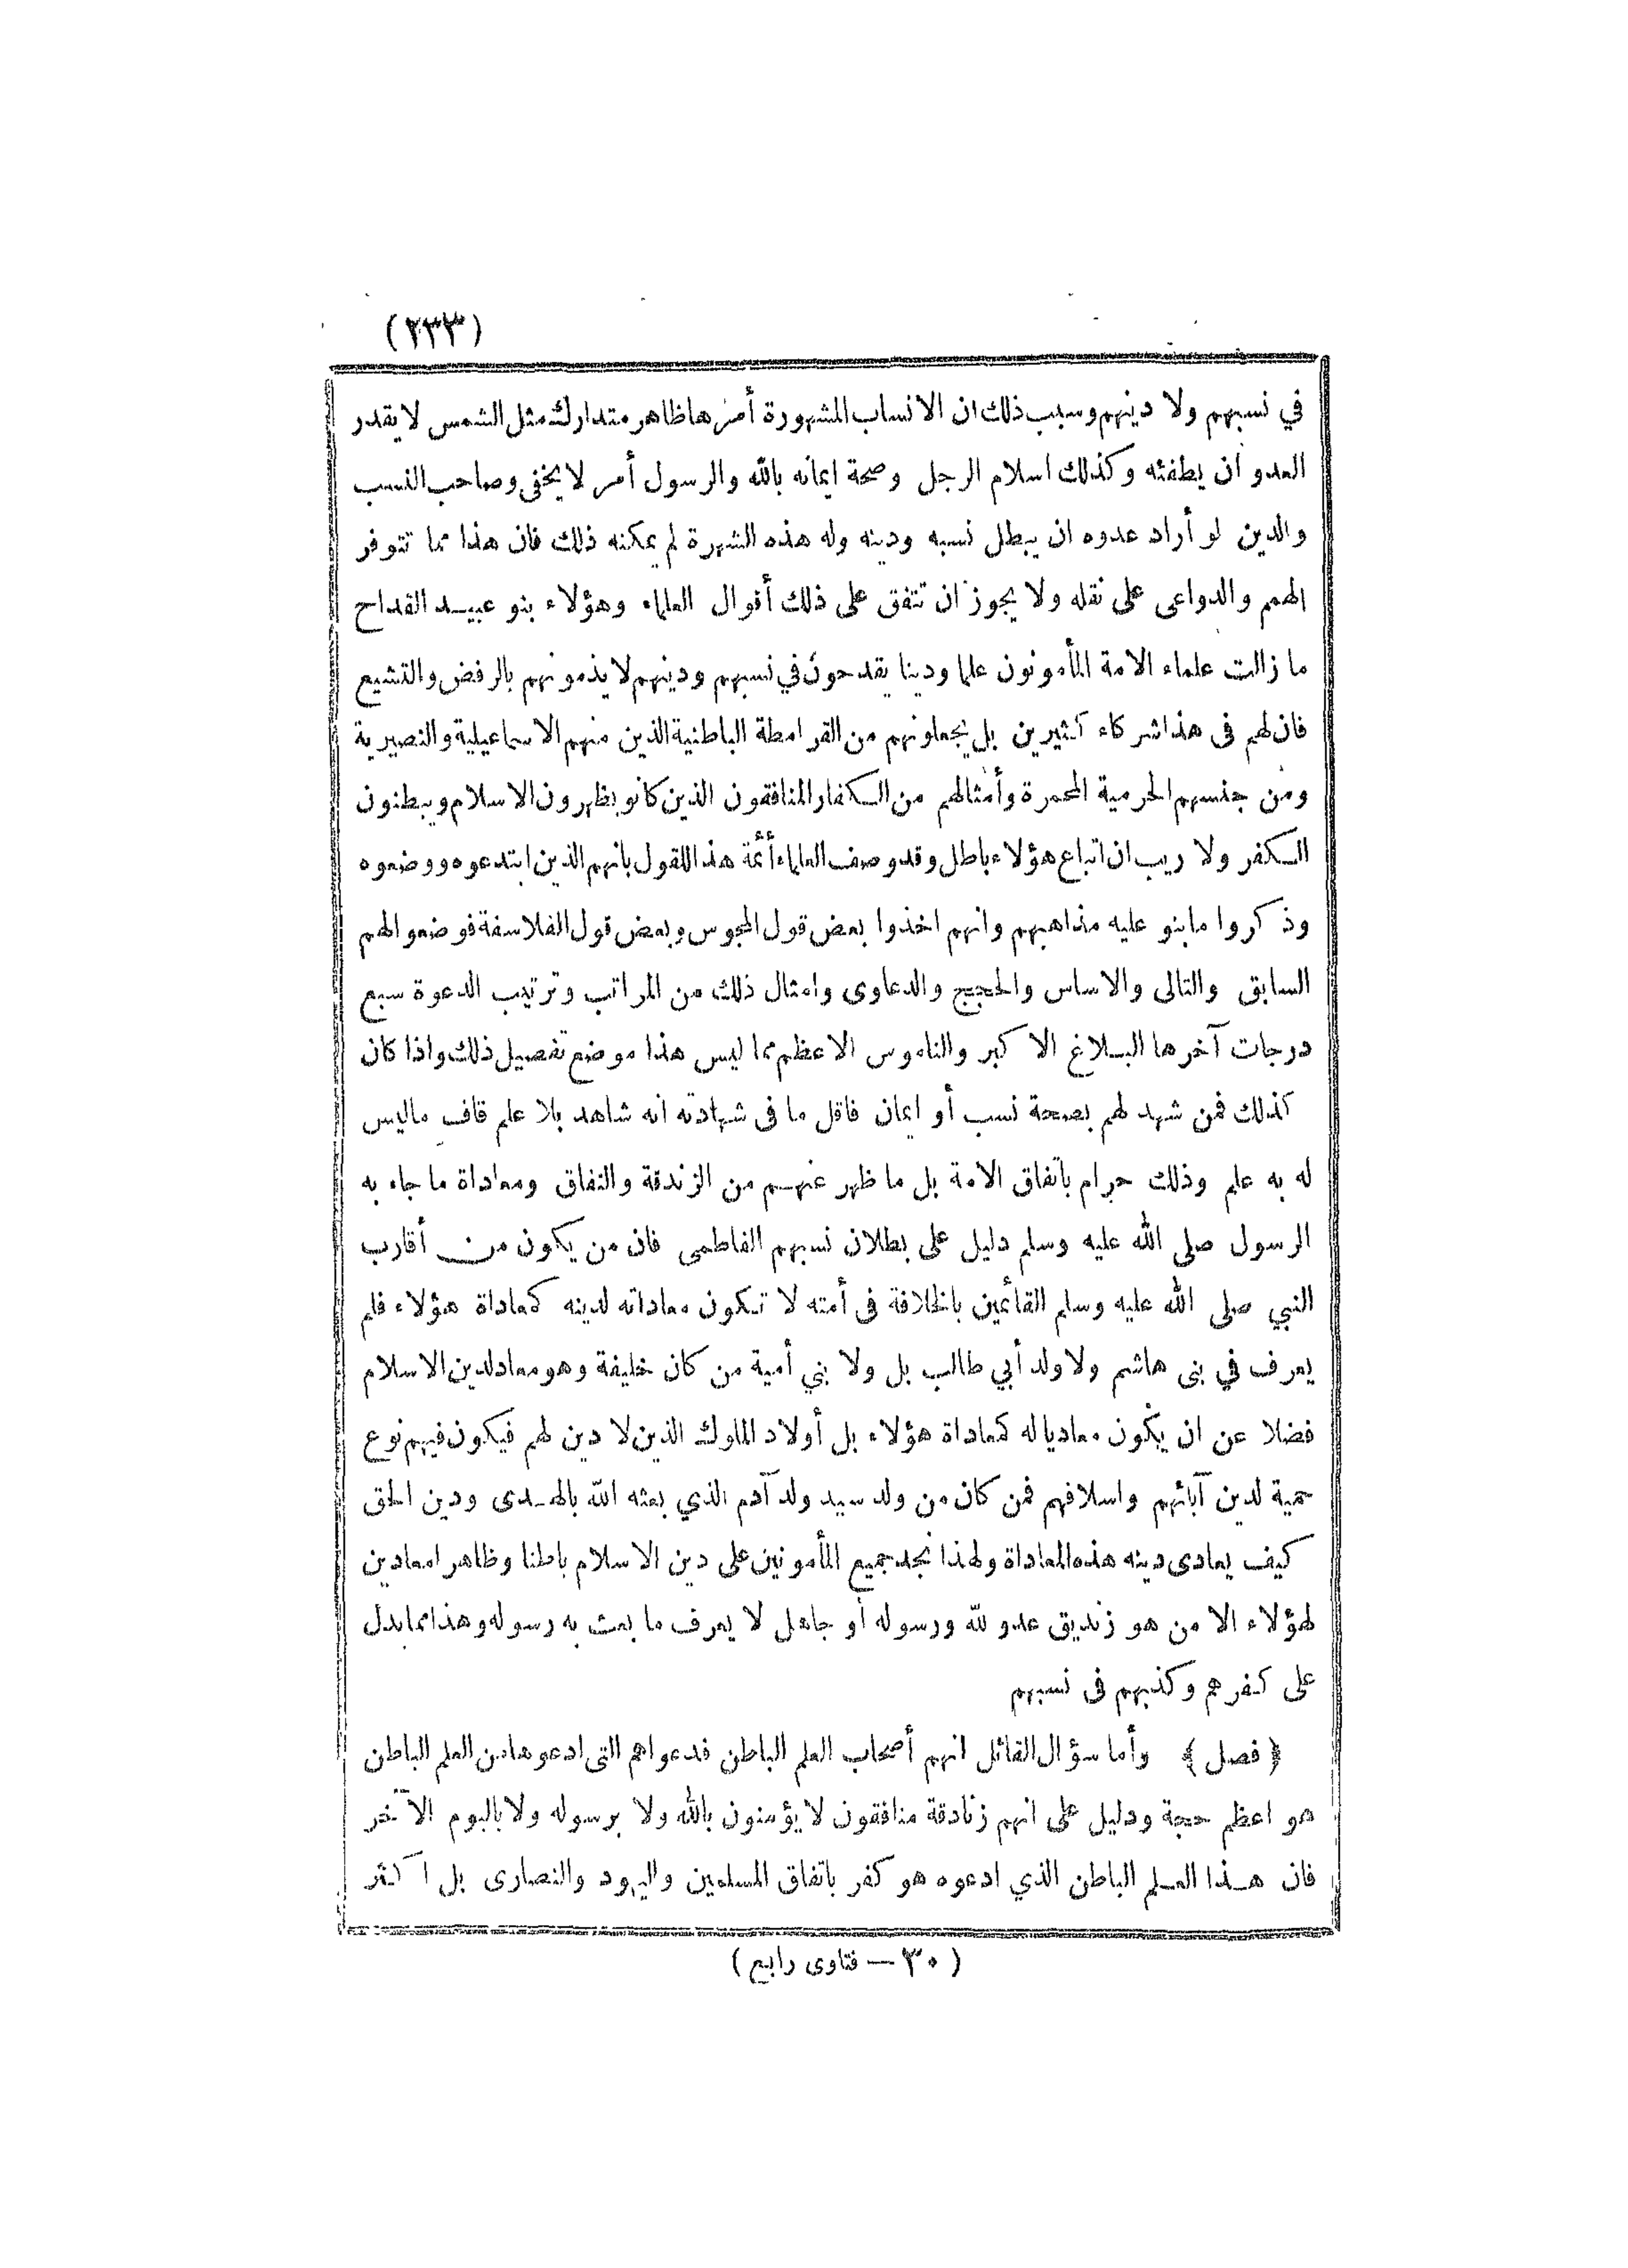 (٢٣٣)
في نسبهم ولا دينهم وسبب ذلك ان الانساب المشهورة أمرها ظاهر متدارك مثل الشمس لا يقدر
العدو ان يطفئه وكذلك اسلام الرجل وصحة ايمانه بالله والرسول أمر لا يخفى وصاحب النسب
والدين لو أراد عدوه ان يبطل نسبه ودينه وله هذه الشهرة لم يمكنه ذلك فان هذا مما تتوفر
الهمم والدواعى على نقله ولا يجوز ان تتفق على ذلك أقوال العلماء وهؤلاء بنو عبيد القداح
ما زالت علماء الامة المأمونون علما ودينا يقدحون في نسبهم ودينهم لا يذمونهم بالرفض والتشيع
فان لهم فى هذا شركاء كثيرين بل يجعلونهم من القرامطة الباطنية الذين منهم الاسماعيلية والنصيرية
ومن جنسهم الخرمية المحمرة وأمثالهم من الكفار المنافقون الذين كانو يظهرون الاسلام ويبطنون
الكفر ولا ريب ان اتباع هؤلاء باطل وقد وصف العلماء أئمة هذا القول بانهم الذين ابتدعوه ووضعوه
وذكروا ما بنو عليه مذاهبهم وانهم اخذوا بعض قول المجوس وبعض قول الفلاسفة فوضعوا لهم
السابق والتالى والاساس والحجج والدعاوى وامثال ذلك من المراتب وترتيب الدعوة سبع
درجات آخرها البلاغ الاكبر والناموس الاعظم مما ليس هذا موضع تفصيل ذلك واذا كان
كذلك فمن شهد لهم بصحة نسب أو ايمان فاقل ما فى شهادته انه شاهد بلا علم قاف ماليس
له به علم وذلك حرام باتفاق الامة بل ما ظهر عنهم من الزندقة والنفاق ومعاداة ما جاء به
الرسول صلى الله عليه وسلم دليل على بطلان نسبهم الفاطمى فان من يكون من أقارب
النبي صلى الله عليه وسلم القائمين بالخلافة فى أمته لا تكون معاداته لدينه كمعاداة هؤلاء فلم
يعرف في بنى هاشم ولا ولد أبي طالب بل ولا بني أمية من كان خليفة وهو معاد لدين الاسلام
فضلا عن ان يكون معاديا له كمعاداة هؤلاء بل أولاد الملوك الذين لا دين لهم فيكون فيهم نوع
حمية لدين آبائهم واسلافهم فمن كان من ولد سيد ولد آدم الذي بعثه الله بالهدى ودين الحق
كيف يعادى دينه هذه المعاداة ولهذا نجد جميع المأمونين على دين الاسلام باطنا وظاهرا معادين
لهؤلاء الا من هو زنديق عدو لله ورسوله أو جاهل لا يعرف ما بعث به رسوله وهذا مما يدل
على كفرهم وكذبهم فى نسبهم
﴿ فصل ﴾ وأما سؤال القائل انهم أصحاب العلم الباطن فدعواهم التى ادعوها من العلم الباطن
هو اعظم حجة ودليل على انهم زنادقة منافقون لا يؤمنون بالله ولا برسوله ولا باليوم الآخر
فان هذا العلم الباطن الذي ادعوه هو كفر باتفاق المسلمين واليهود والنصارى بل اكثر
(٣٠ — فتاوى رابع)